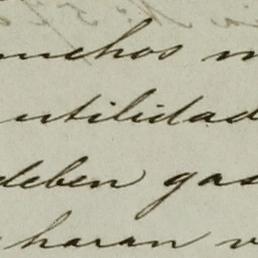 muchos
utilidad
deben gas
haran